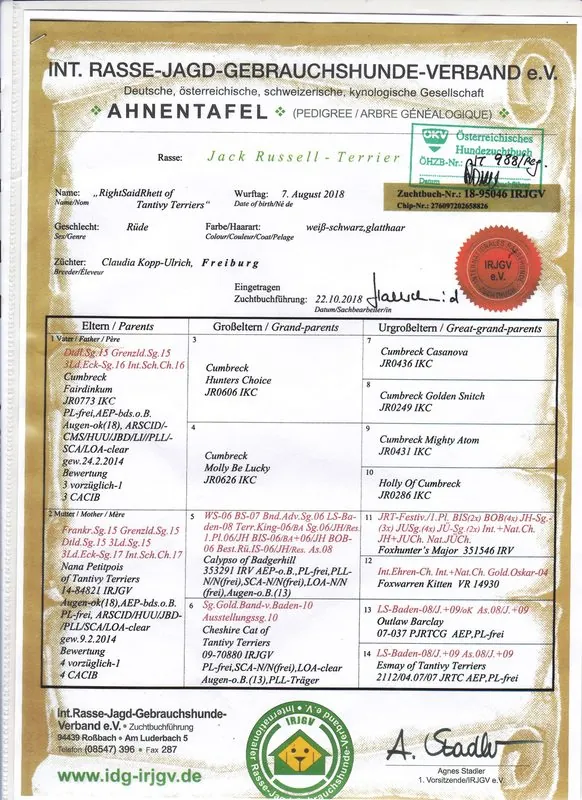 INT. RASSE-JAGD-GEBRAUCHSHUNDE-VERBAND e.V.
Deutsche, österreichische, schweizerische, kynologische Gesellschaft
AHNENTAFEL (PEDIGREE / ARBRE GÉNÉALOGIQUE)
ÖKV Österreichisches
Hundezuchtbuch
ÖHZB-Nr.:
Rasse: Jack Russell - Terrier
Datum
Zuchtbuch-Nr.: 18-95046 IRJGV
Chip-Nr.: 276097202658826
Name: „RightSaidRhett of Wurftag: 7. August 2018
Name/Nom Tantivy Terriers" Date of birth/Né de
Geschlecht: Rüde Farbe/Haarart: weiß-schwarz,glatthaar
Sex/Genre Colour/Couleur/Coat/Pelage
Züchter: Claudia Kopp-Ulrich, Freiburg
Breeder/Éleveur
Eingetragen
Zuchtbuchführung: 22.10.2018
Datum/Sachbearbeiter/in
IRJGV
e.V.
Eltern / Parents
1 Vater / Father / Père
Dtdl.Sg.15 Grenzld.Sg.15
3Ld.Eck-Sg.16 Int.Sch.Ch.16
Cumbreck
Fairdinkum
JR0773 IKC
PL-frei,AEP-bds.o.B.
Augen-ok(18), ARSCID/-
CMS/HUU/JBD/LI//PLL/-
SCA/LOA-clear
gew.24.2.2014
Bewertung
3 vorzüglich-1
3 CACIB
2 Mutter / Mother / Mère
Frankr.Sg.15 Grenzld.Sg.15
Dtld.Sg.15 3Ld.Sg.15
3Ld.Eck-Sg.17 Int.Sch.Ch.17
Nana Petitpois
of Tantivy Terriers
14-84821 IRJGV
Augen-ok(18),AEP-bds.o.B.
PL-frei, ARSCID/HUU/JBD-
/PLL/SCA/LOA-clear
gew.9.2.2014
Bewertung
4 vorzüglich-1
4 CACIB
Großeltern / Grand-parents
3
Cumbreck
Hunters Choice
JR0606 IKC
4
Cumbreck
Molly Be Lucky
JR0626 IKC
5 WS-06 BS-07 Bnd.Adv.Sg.06 LS-Ba-
den-08 Terr.King-06/BA Sg.06/JH/Res.
1.Pl.06/JH BIS-06/BA+06/JH BOB-
06 Best.Rü.IS-06/JH/Res. As.08
Calypso of Badgerhill
353291 IRV AEP-o.B.,PL-frei,PLL-
N/N(frei),SCA-N/N(frei),LOA-N/N
(frei),Augen-o.B.(13)
6 Sg.Gold.Band-v.Baden-10
Ausstellungssg.10
Cheshire Cat of
Tantivy Terriers
09-70880 IRJGV
PL-frei,SCA-N/N(frei),LOA-clear
Augen-o.B.(13),PLL-Träger
Urgroßeltern / Great-grand-parents
7
Cumbreck Casanova
JR0436 IKC
8
Cumbreck Golden Snitch
JR0249 IKC
9
Cumbreck Mighty Atom
JR0431 IKC
10
Holly Of Cumbreck
JR0286 IKC
11 JRT-Festiv./1.Pl. BIS(2x) BOB(4x) JH-Sg.-
(3x) JUSg.(4x) JÜ-Sg.(2x) Int.+Nat.Ch.
JH+JUCh. Nat.JÜCh.
Foxhunter's Major 351546 IRV
12
Int.Ehren-Ch. Int.+Nat.Ch. Gold.Oskar-04
Foxwarren Kitten VR 14930
13 LS-Baden-08/J.+09/oK As.08/J.+09
Outlaw Barclay
07-037 PJRTCG AEP,PL-frei
14 LS-Baden-08/J.+09 As.08/J.+09
Esmay of Tantivy Terriers
2112/04.07/07 JRTC AEP,PL-frei
Int.Rasse-Jagd-Gebrauchshunde-
Verband e.V. • Zuchtbuchführung
94439 Roßbach • Am Luderbach 5
Telefon (08547) 396 • Fax 287
www.idg-irjgv.de
IRJGV
A. Stadler
Agnes Stadler
1. Vorsitzende/IRJGV e.V.